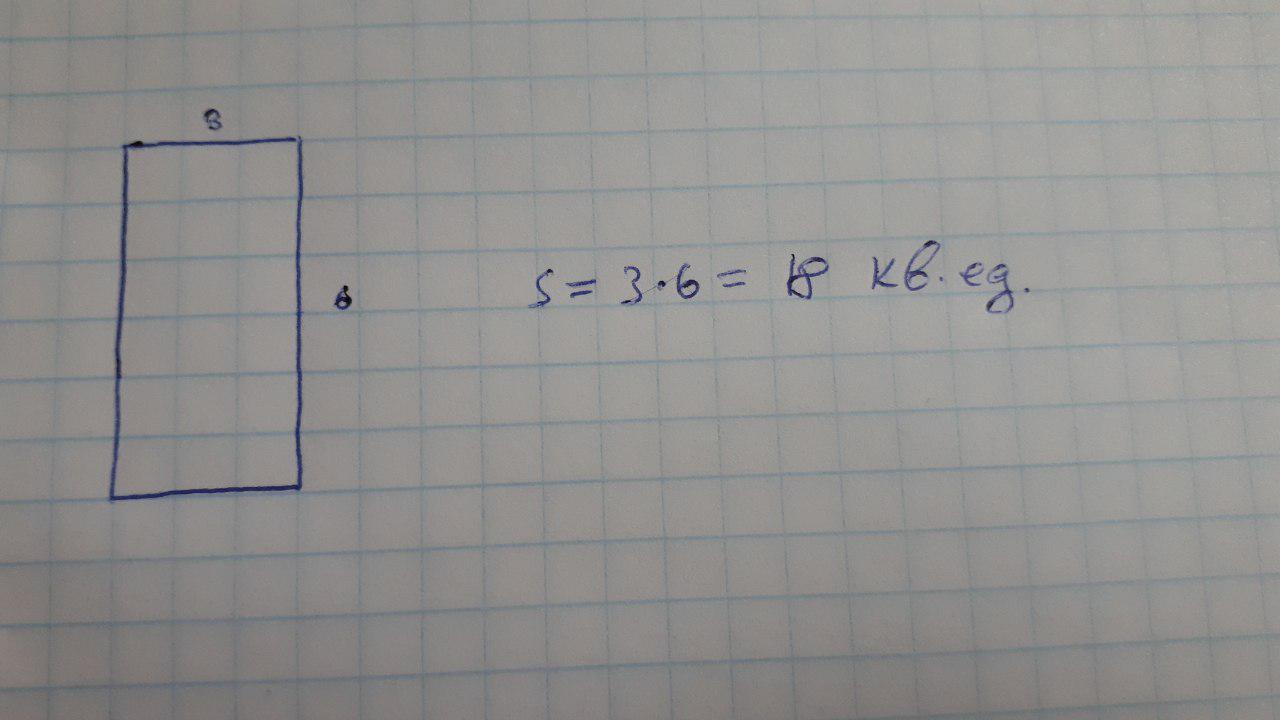 3
6
S = 3·6 = 18 кв. ед.